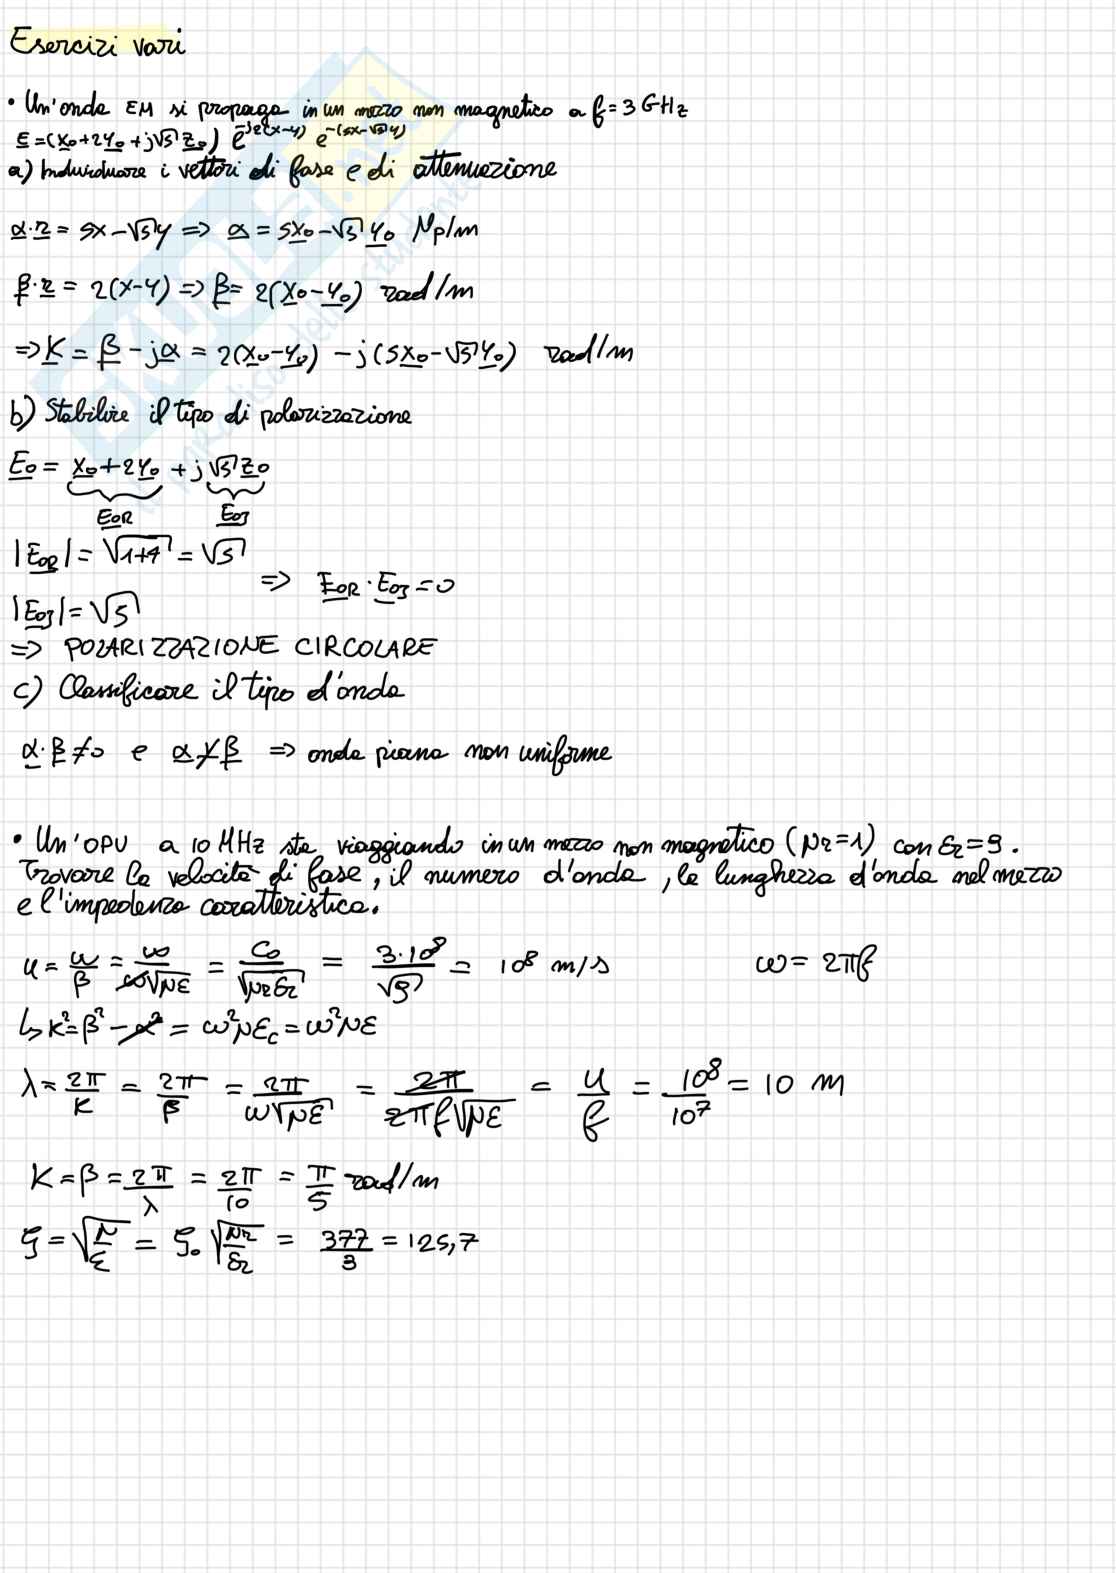 Esercizi vari
• Un'onda EM si propaga in un mezzo non magnetico a f=3 GHz
E=(x₀+2y₀+j√5 z₀) e^-j2(x-y) e^-(5x-√5y)
a) Individuare i vettori di fase e di attenuazione
α·r = 5x-√5y => α = 5x₀-√5 y₀ Np/m
β·r = 2(x-y) => β= 2(x₀-y₀) rad/m
=> K = β - jα = 2(x₀-y₀) - j(5x₀-√5y₀) rad/m
b) Stabilire il tipo di polarizzazione
E₀ = x₀+2y₀ + j√5 z₀
E₀R E₀J
|E₀R| = √1+4 = √5
=> E₀R · E₀J = 0
|E₀J| = √5
=> POLARIZZAZIONE CIRCOLARE
c) Classificare il tipo d'onda
α·β≠0 e α∦β => onda piana non uniforme
• Un'OPU a 10 MHz sta viaggiando in un mezzo non magnetico (μr=1) con εr=9.
Trovare la velocità di fase, il numero d'onda, la lunghezza d'onda nel mezzo
e l'impedenza caratteristica.
u = ω/β = ω/ω√με = C₀/√μrεr = 3·10⁸/√9 = 10⁸ m/s ω = 2πf
↳ K²=β²-α² = ω²μεc = ω²με
λ = 2π/K = 2π/β = 2π/ω√με = 2π/2πf√με = u/f = 10⁸/10⁷ = 10 m
K = β = 2π/λ = 2π/10 = π/5 rad/m
ζ = √μ/ε = ζ₀ √μr/εr = 377/3 = 125,7